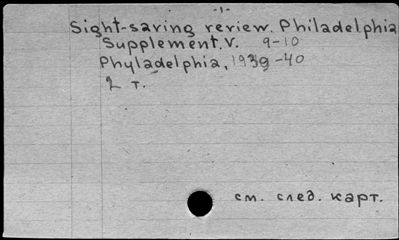 -1-
Sight-saving review. Philadelphia
Supplement. V. 9-10
Phyladelphia, 1939-40
2 т.
см. след. карт.